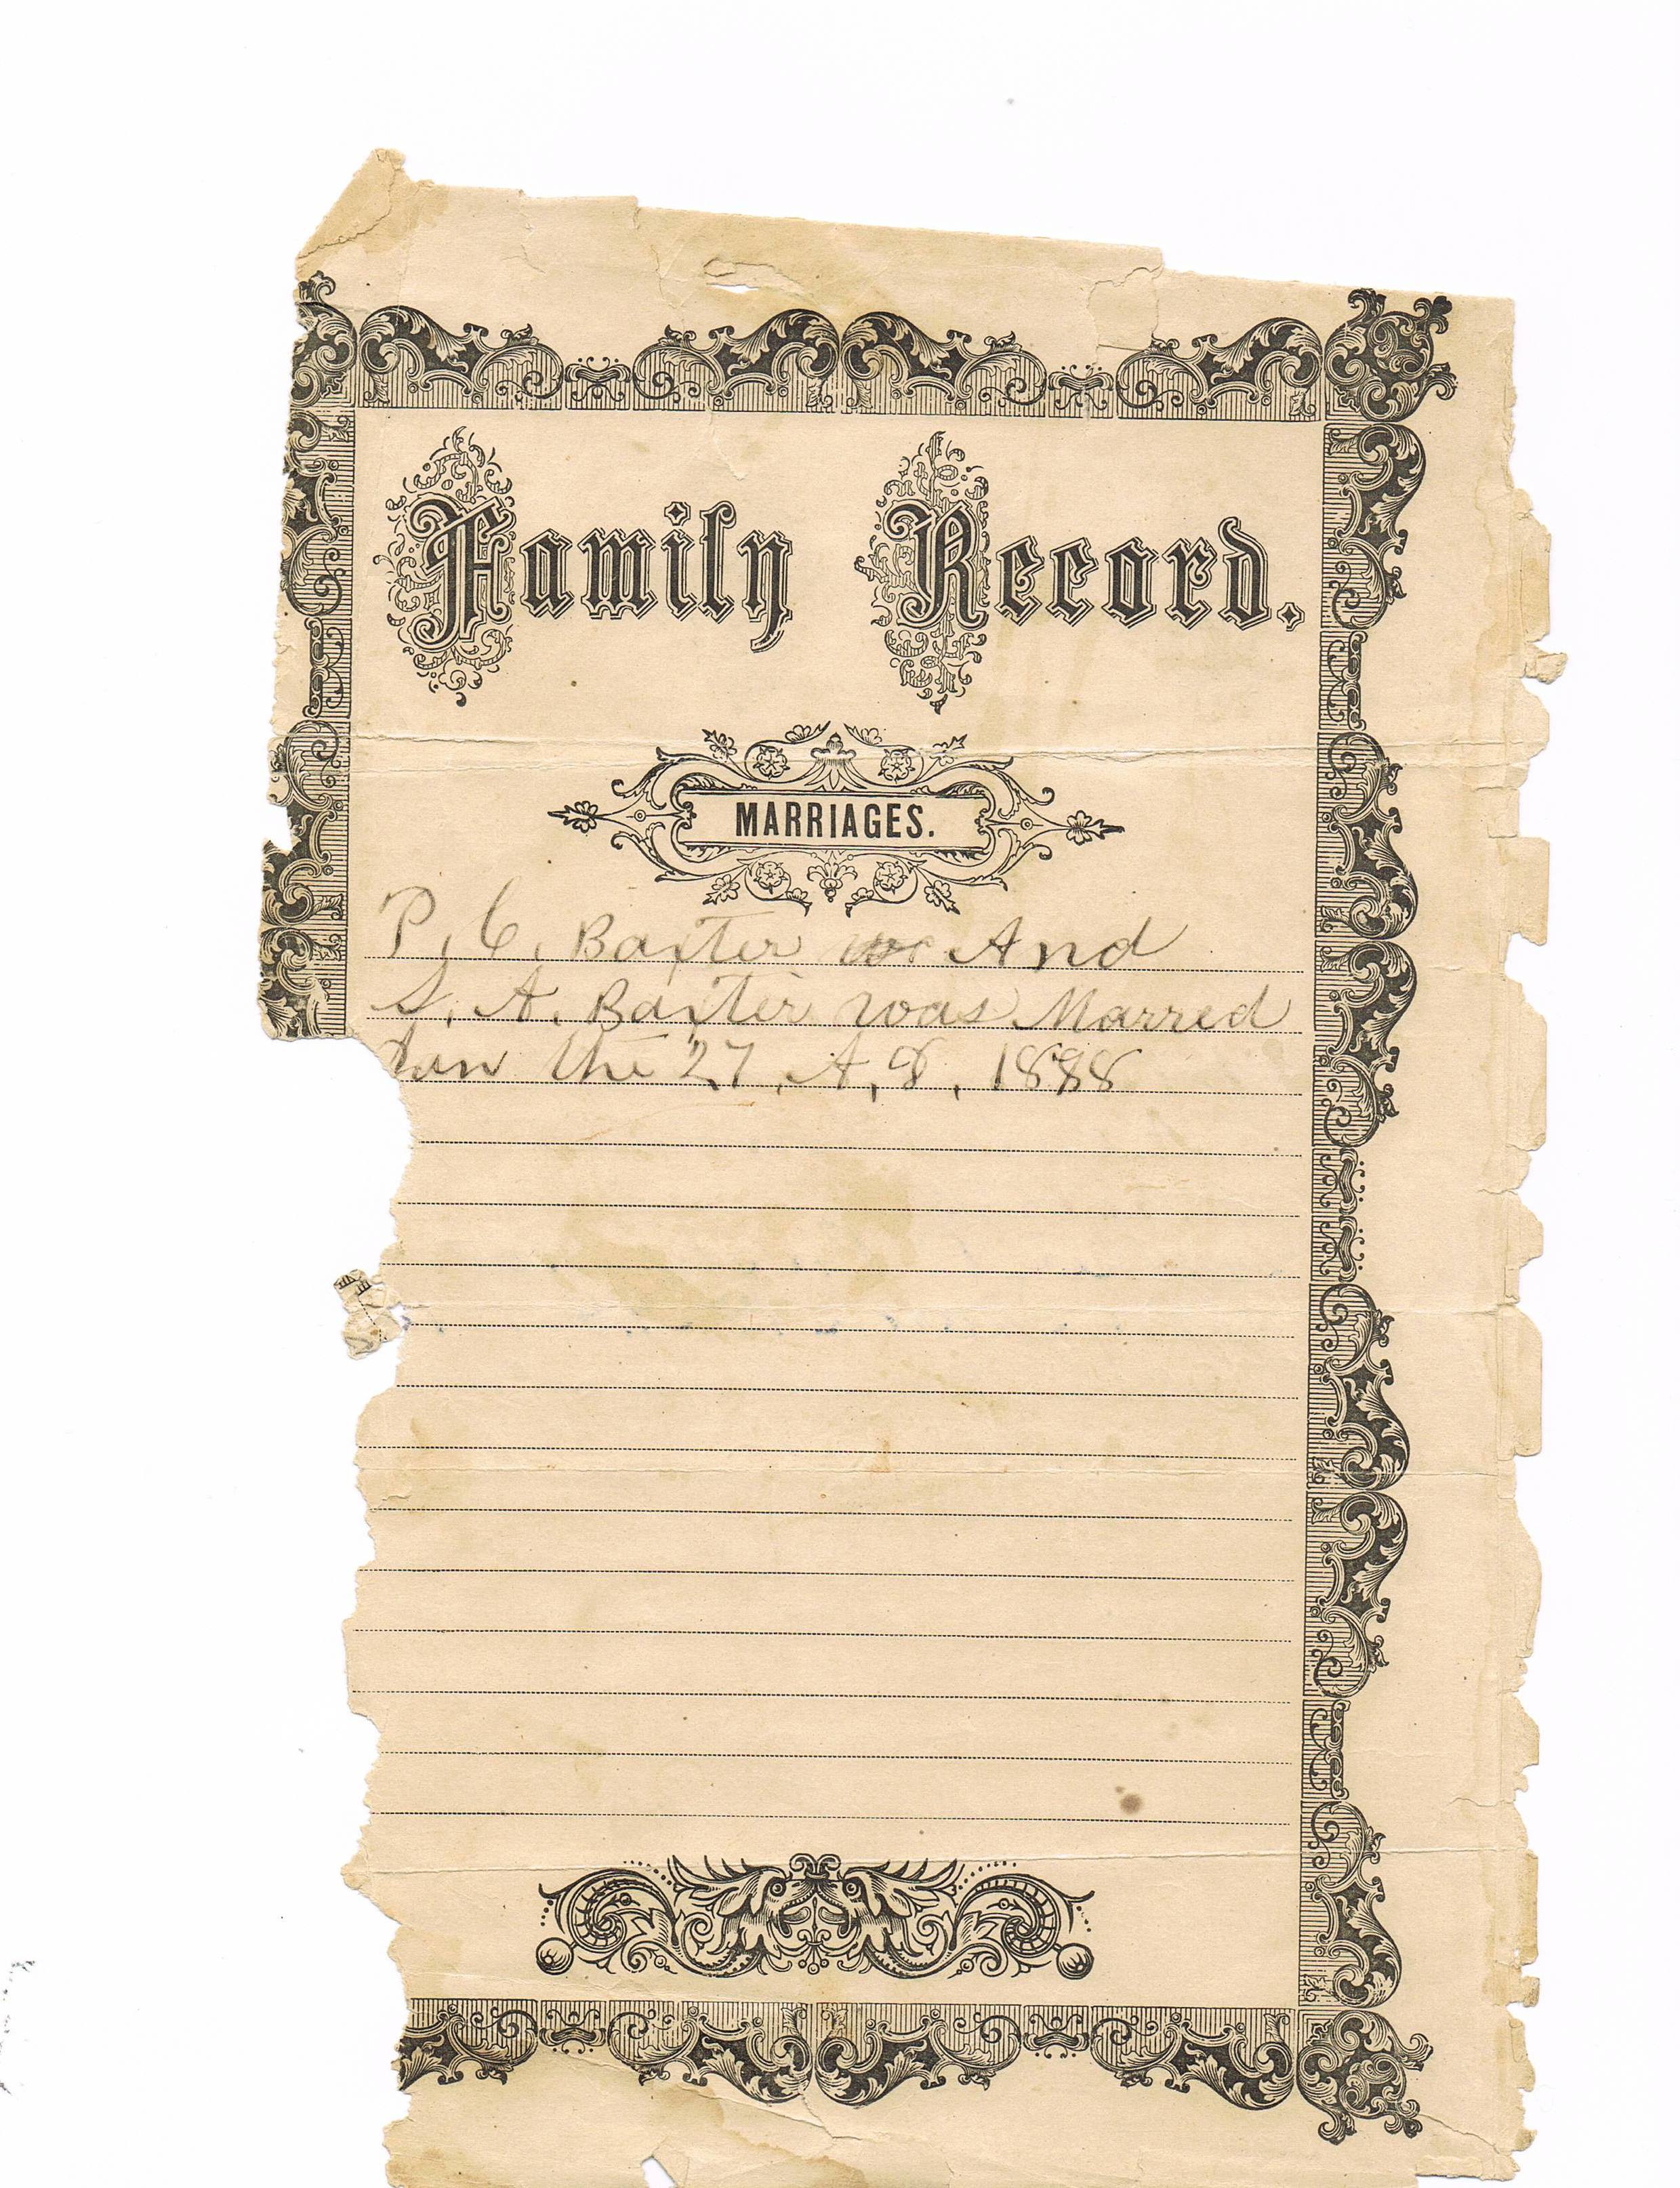 Family Record.
MARRIAGES.
P. C. Baxter And
S. A. Baxter was Marred
Jan the 27, A, D, 1888